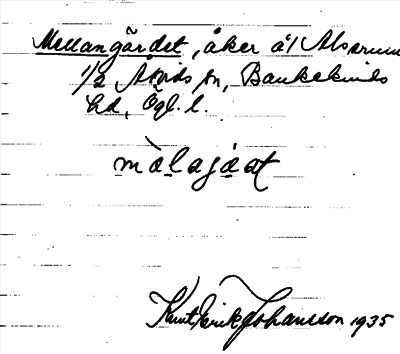 Mellangärdet, åker å 1/
1/2 Åsvids sn, Bankekinds
hd, Ögl. l.
màlajáat
Knut Erik Johansson 1935